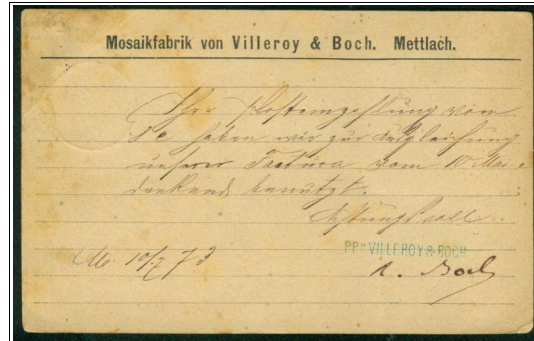 Mosaikfabrik von Villeroy & Boch. Mettlach.
Ihre Posteinzahlung vom
haben wir zur Ausgleichung
unserer Factura vom 10 Mai
dankend benutzt.
Achtungsvoll
PPᵃ VILLEROY & BOCH
M. 10/7 73
Boch